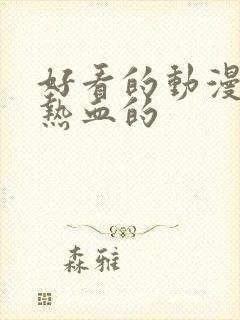 好看的動漫
熱血的
森雅